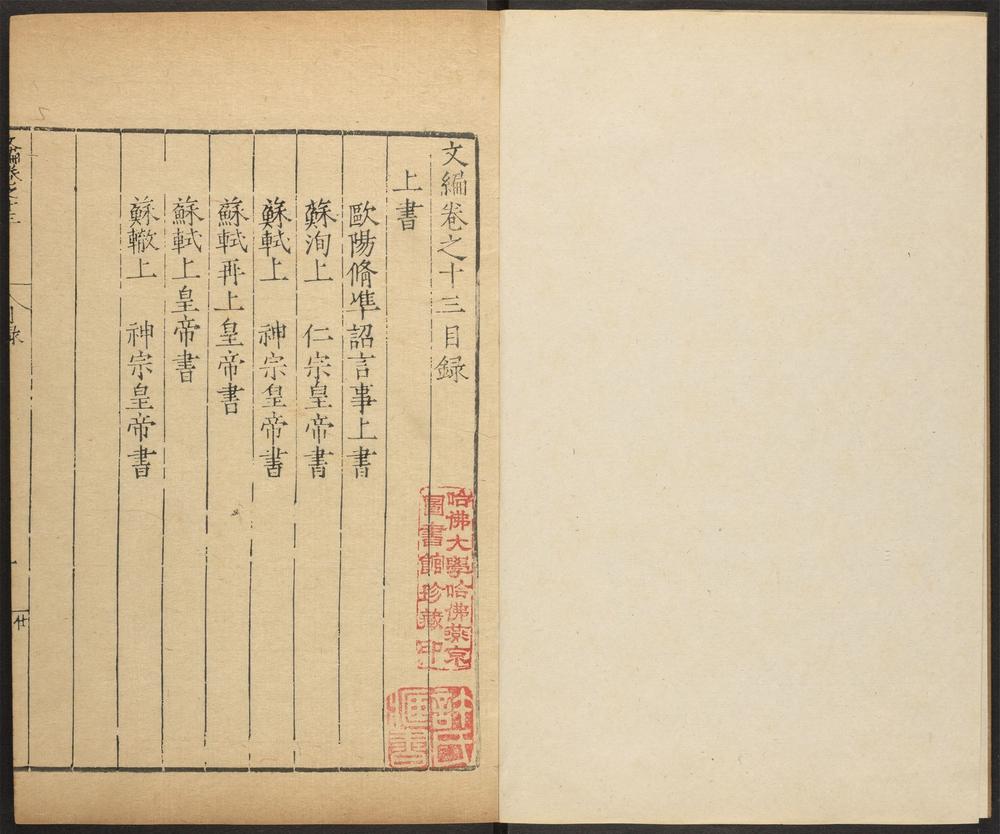 文編卷之十三目録
上書
歐陽脩準詔言事上書
蘇洵上 仁宗皇帝書
蘇軾上 神宗皇帝書
蘇軾再上皇帝書
蘇軾上皇帝書
蘇轍上 神宗皇帝書
哈佛大學哈佛燕京
圖書館珍藏印
文編卷之十三
目录
一